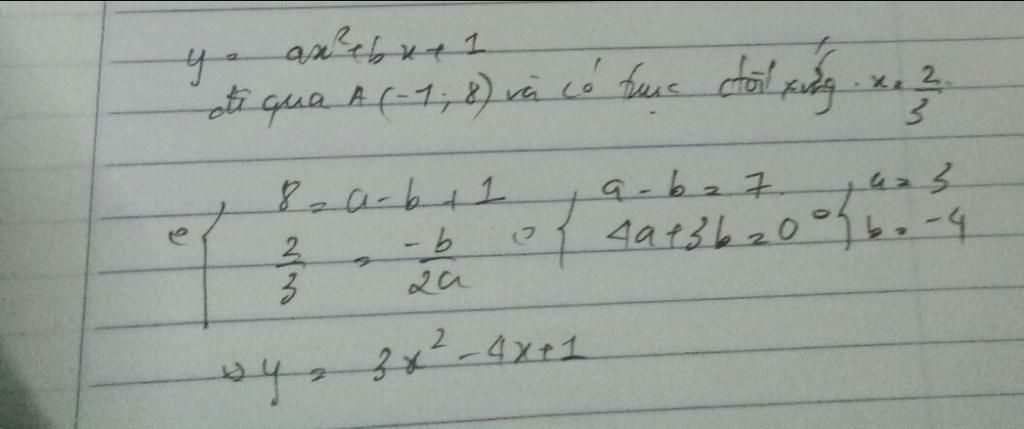 y = ax²+bx+1
đi qua A(-1; 8) và có trục đối xứng x = 2/3
{ 8 = a-b+1 { a-b = 7 { a = 3
2/3 = -b/2a 4a+3b = 0 b = -4
y = 3x²-4x+1